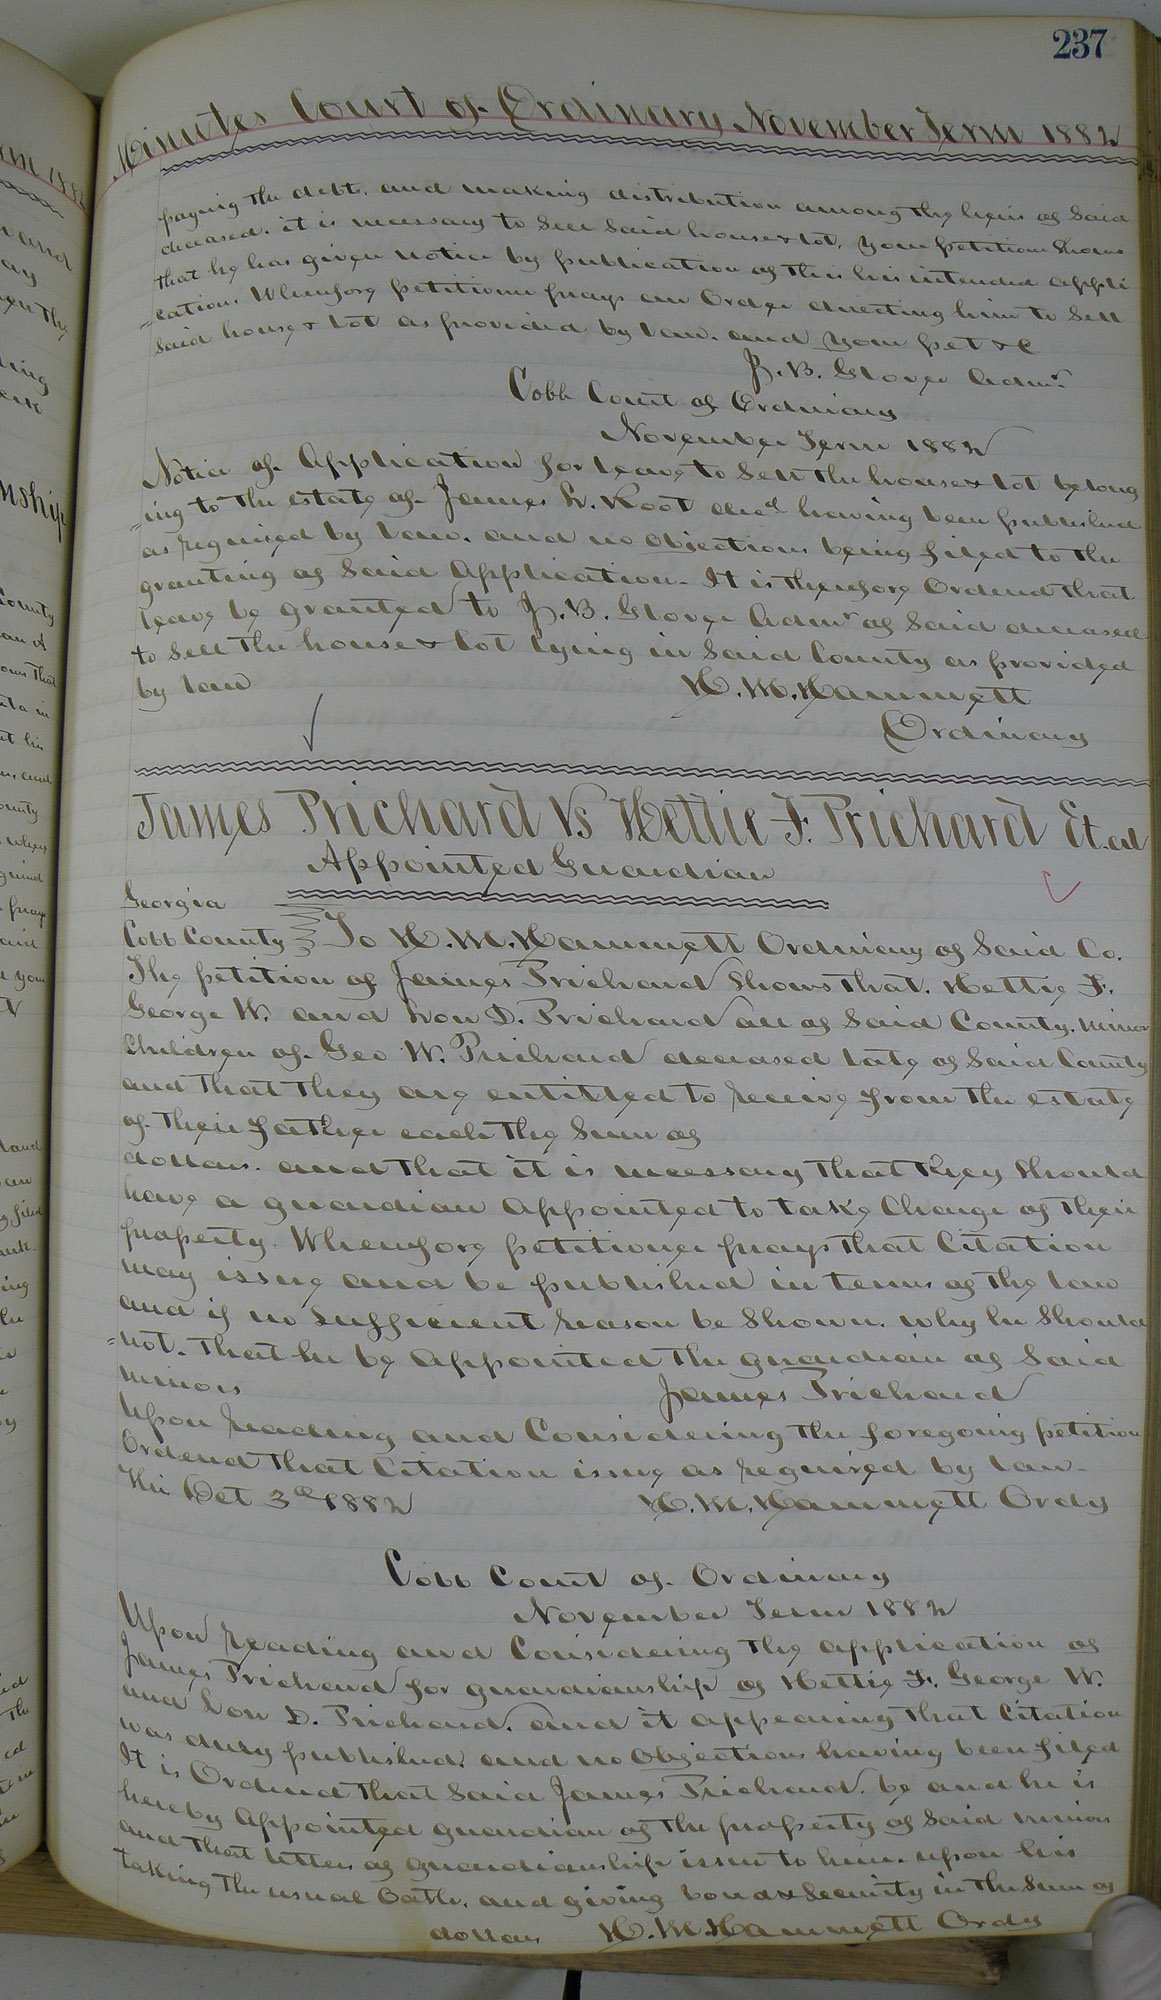 237
Minutes Court of Ordinary November Term 1882
paying the debt. and making distribution among the heirs of Said
deceased. it is necessary to Sell Said house & lot. Your petitioner Shows
that he has given notice by publication of this his intended appli
=cation. Wherefore petitioner prays an Order directing him to Sell
Said house & Lot as provided by law. and your pet &c
J. B. Glover Admr
Cobb Court of Ordinary
November Term 1882
Notice of Application for leave to Sell the house & lot belong
=ing to the estate of James L. Root decd having been published
as required by law. and no objections being filed to the
granting of Said Application. It is therefore Ordered that
leave be granted to J. B. Glover Admr of Said deceased
to Sell the house & Lot lying in Said County as provided
by law
H. M. Hammett
Ordinary
James Prichard Vs Hettie F. Prichard Et.al
Appointed Guardian
Georgia
Cobb County To H. M. Hammett Ordinary of Said Co.
The petition of James Prichard Shows that. Hettie F.
George W. and Lou D. Prichard all of Said County. minor
Children of Geo W. Prichard deceased late of Said County
and that they are entitled to receive from the estate
of their father each the Sum of
dollars. and that it is necessary that they Should
have a guardian Appointed to take Charge of their
property. Wherefore petitioner prays that Citation
may issue and be published in terms of the law
and if no Sufficient reason be Shown. why he Should
=not. that he be Appointed the guardian of Said
minors
James Prichard
Upon reading and Considering the foregoing petition
Ordered that Citation issue as required by law-
This Oct 3d 1882
H. M. Hammett Ordy
Cobb Court of Ordinary
November Term 1882
Upon reading and Considering the application of
James Prichard for guardianship of Hettie F. George W.
and Lou D. Prichard. and it appearing that Citation
was duly published. and no Objections having been filed
It is Ordered that Said James Prichard. be and he is
hereby Appointed guardian of the property of Said minors
and that letters of guardianship issue to him. upon his
taking the usual Oath. and giving bond & Security in the Sum of
dollars H. M. Hammett Ordy